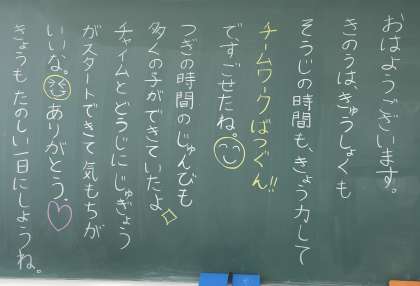 おはようございます。
きのうは、きゅうしょくも
そうじの時間も、きょう力して
チームワークばつぐん!!
ですごせたね。
つぎの時間のじゅんびも
多くの子ができていたよ
チャイムとどうじにじゅぎょう
がスタートできて気もちが
いいな。ありがとう。
きょうもたのしい一日にしようね。